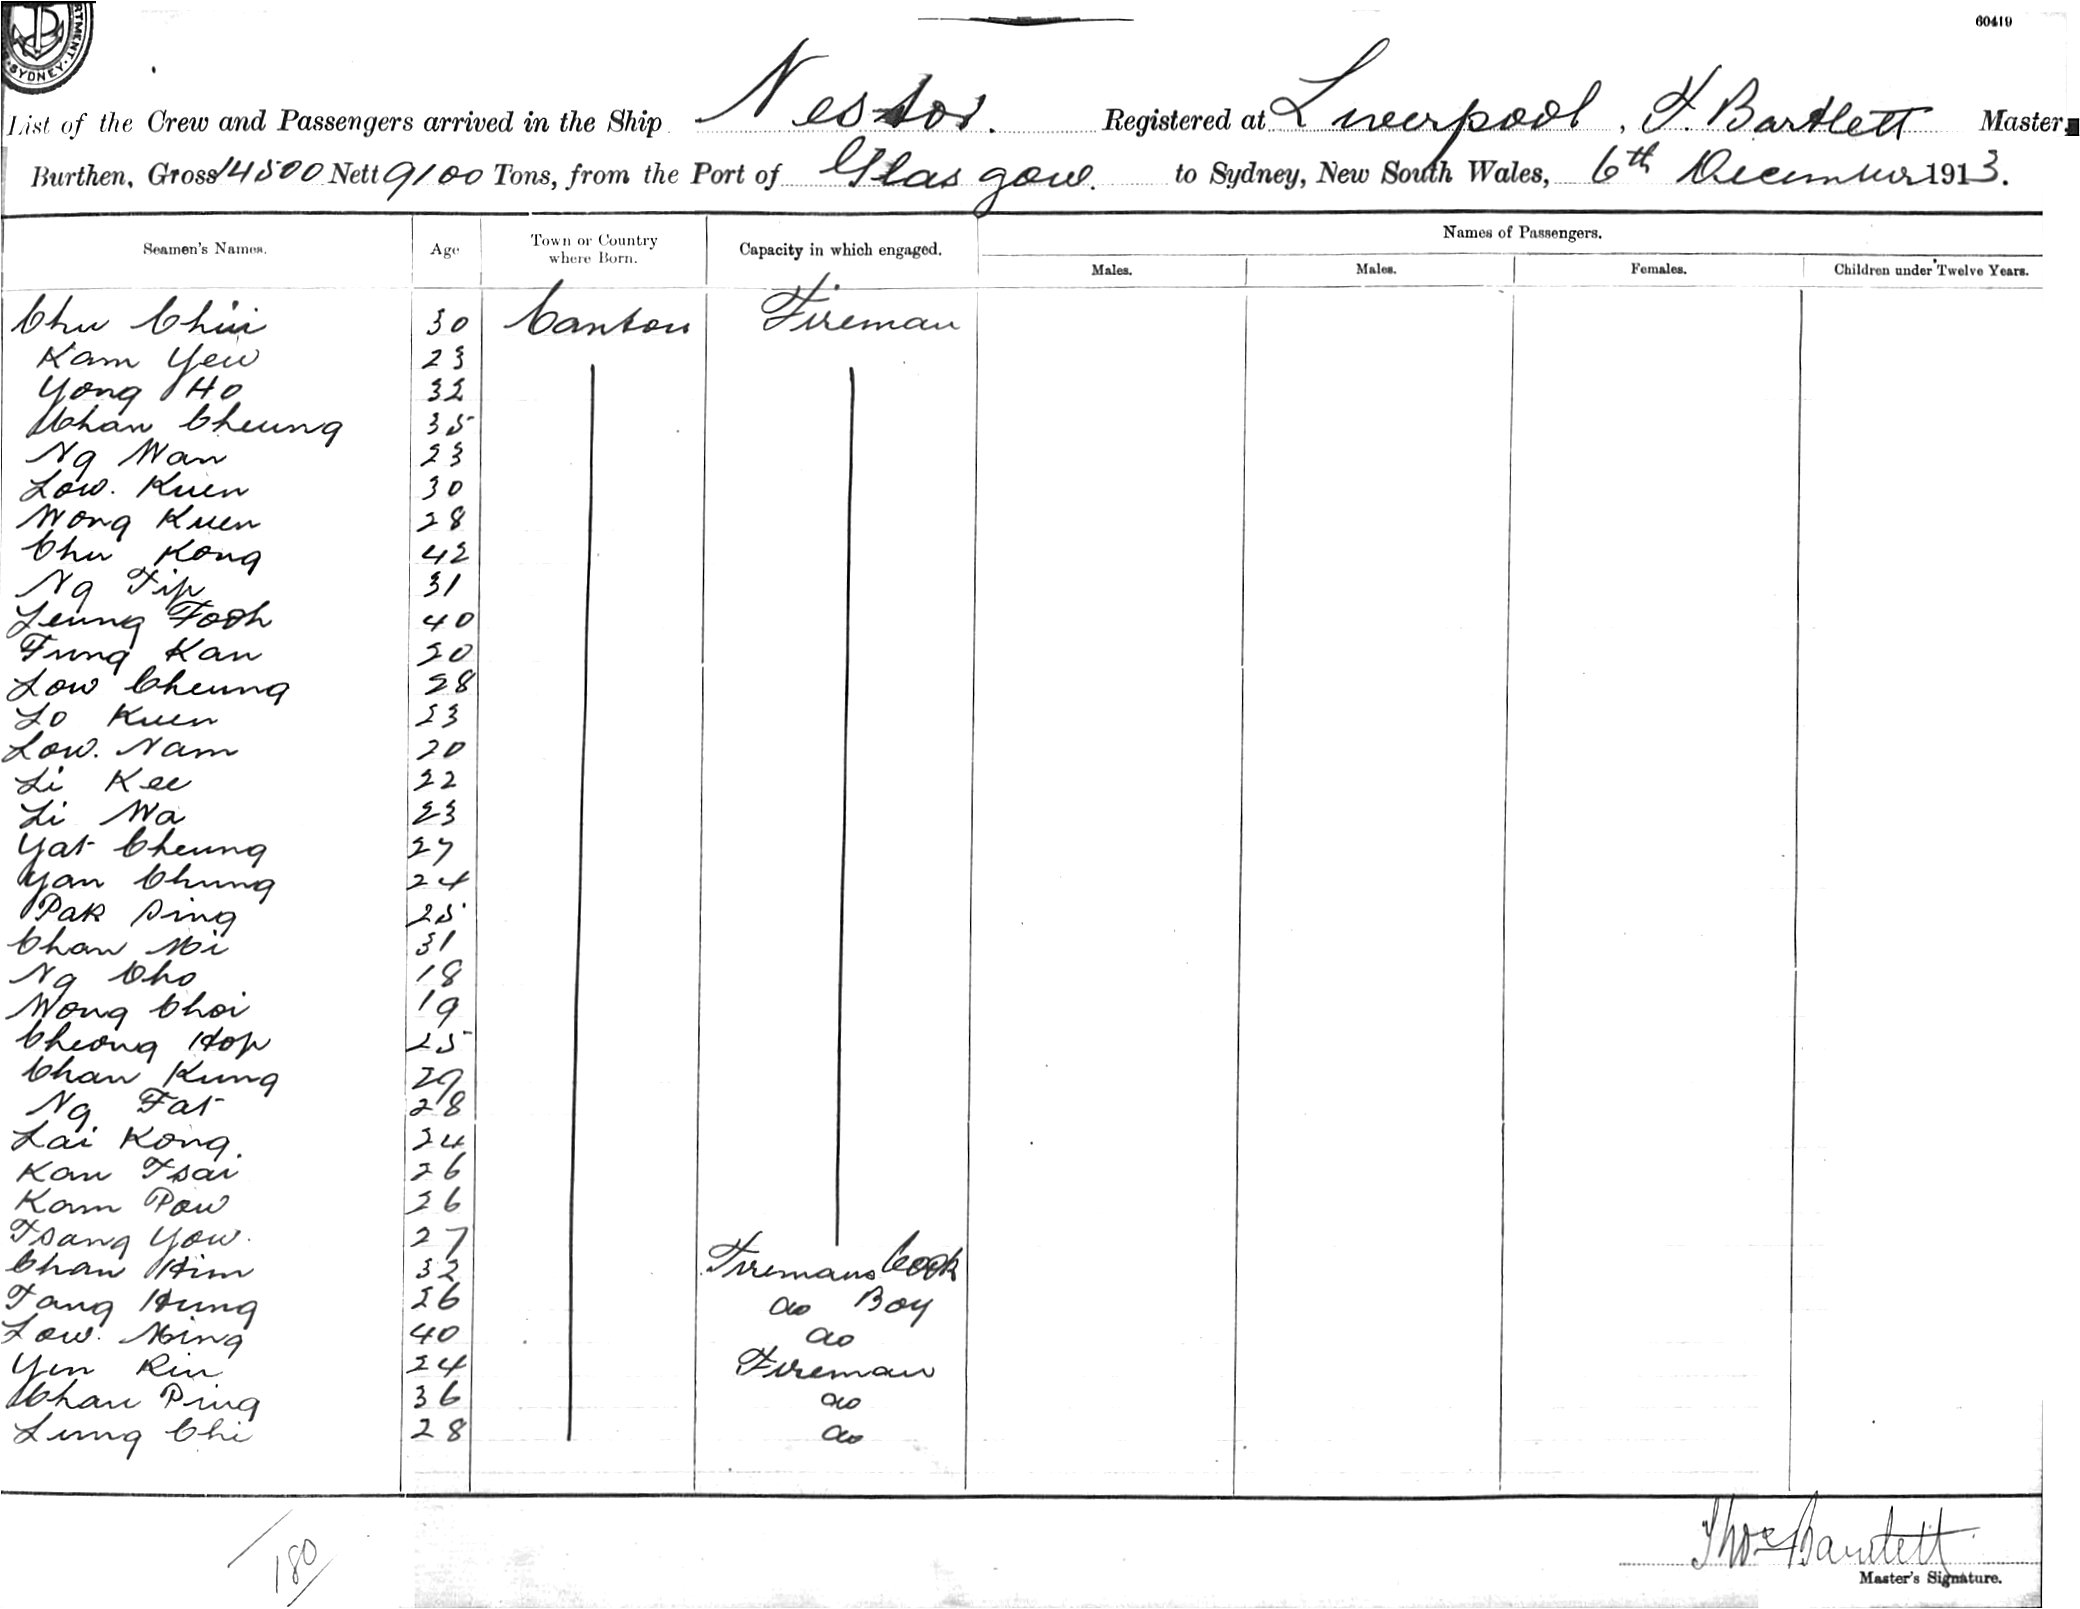 RTMENT. SYDNEY.
60419
List of the Crew and Passengers arrived in the Ship Nestor. Registered at Liverpool, T. Bartlett Master,
Burthen, Gross 14500 Nett 9100 Tons, from the Port of Glasgow. to Sydney, New South Wales, 6th December 1913.
Names of Passengers.
Seamen's Names. Age Town or Country where Born. Capacity in which engaged. Males. Males. Females. Children under Twelve Years.
Chu Chui 30 Canton Fireman
Kam Yew 23
Yong Ho 32
Chan Cheung 35
Ng Wan 23
Low. Kuen 30
Wong Kuen 28
Chu Kong 42
Ng Tip 31
Leung Fooh 40
Fung Kan 20
Low Cheung 28
Lo Kuen 23
Low. Nam 20
Li Kee 22
Li Wa 23
Yat Cheung 27
Yan Chung 24
Pak Sing 25
Chan Mi 31
Ng Cho 18
Wong Choi 19
Cheong Hop 25
Chan Kung 29
Ng Fat 28
Lai Kong. 24
Kan Tsai 26
Kam Pow 26
Tsang Yow. 27
Chan Him 32 Firemans Cook
Tang Hung 26 do Boy
Low. Ming 40 do
Yen Kiu 24 Fireman
Chan Ping 36 do
Lung Chi 28 do
180
Thos Bartlett
Master's Signature.